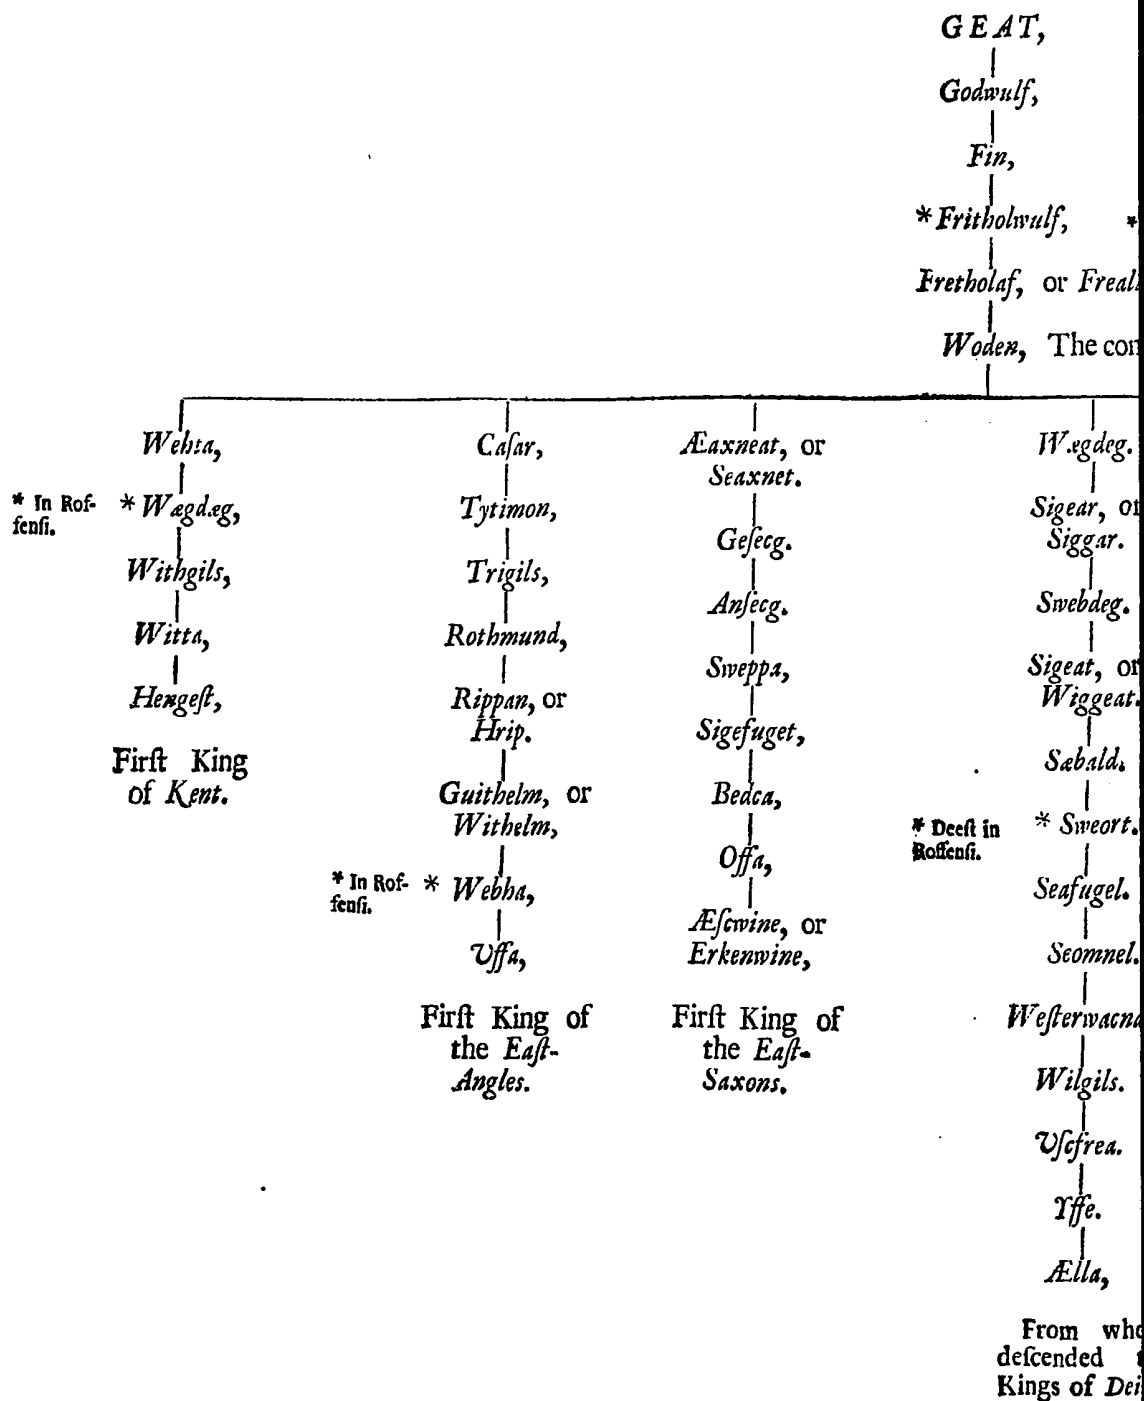 GEAT,
Godwulf,
Fin,
* Fritholwulf, *
Fretholaf, or
Woden, The
Wehta,
* In Rof-
fenſi.
* Wægdæg,
Withgils,
Witta,
Hengeſt,
Firſt King
of Kent.
Caſar,
Tytimon,
Trigils,
Rothmund,
Rippan, or
Hrip.
Guithelm, or
Withelm,
* In Rof-
fenſi.
* Webha,
Uffa,
Firſt King of
the Eaſt-
Angles.
Æaxneat, or
Seaxnet.
Geſecg.
Anſecg.
Sweppa,
Sigefuget,
Bedca,
Offa,
Æſcwine, or
Erkenwine,
Firſt King of
the Eaſt-
Saxons.
Wægdeg.
Sigear, or
Siggar.
Swebdeg.
Sigeat, or
Wiggeat.
Sæbald.
* Deeſt in
Roffenſi.
* Sweort.
Seafugel.
Seomnel.
Weſterwacna
Wilgils.
Uſcfrea.
Yffe.
Ælla,
From
deſcended
Kings of